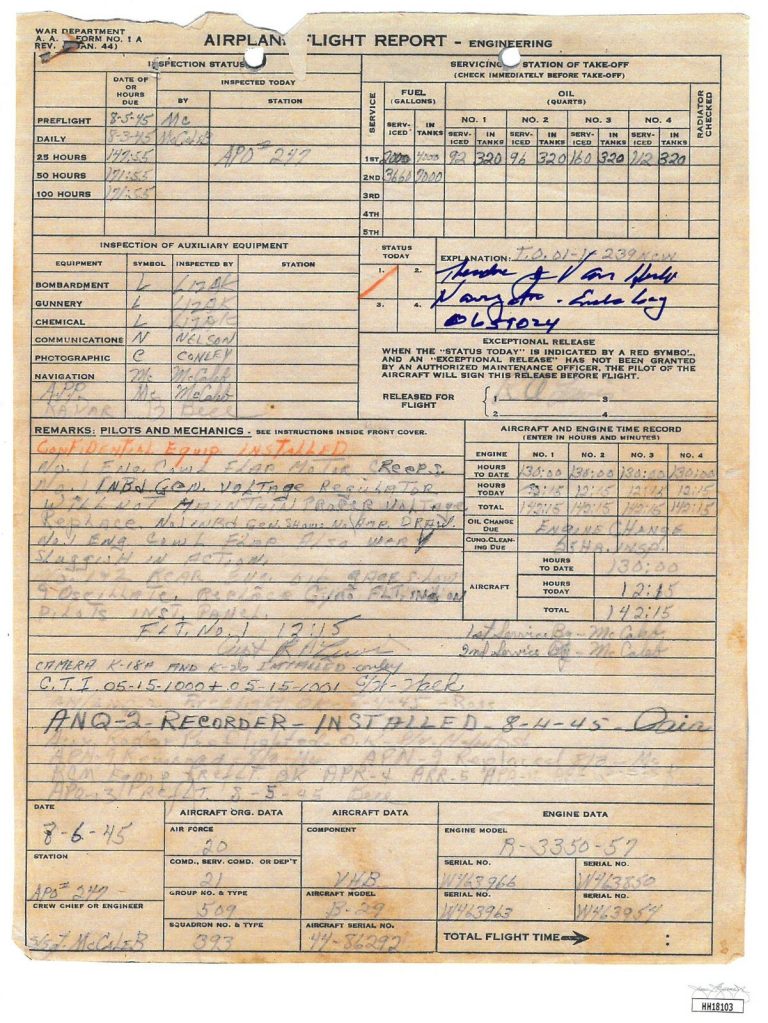 WAR DEPARTMENT
A. A. FORM NO. 1 A
REV. JAN. 44)
AIRPLANE FLIGHT REPORT - ENGINEERING
INSPECTION STATUS
DATE OF OR HOURS DUE
INSPECTED TODAY
BY
STATION
PREFLIGHT 8-5-45 Mc
DAILY 8-3-45 McCaleB
25 HOURS 147:55 APO# 247
50 HOURS 171:55
100 HOURS 171:55
SERVICING STATION OF TAKE-OFF
(CHECK IMMEDIATELY BEFORE TAKE-OFF)
SERVICE
FUEL (GALLONS)
OIL (QUARTS)
RADIATOR CHECKED
NO. 1 NO. 2 NO. 3 NO. 4
SERV-ICED IN TANKS SERV-ICED IN TANKS SERV-ICED IN TANKS SERV-ICED IN TANKS SERV-ICED IN TANKS
1ST 2000 4000 92 320 96 320 160 320 112 320
2ND 3660 7000
3RD
4TH
5TH
INSPECTION OF AUXILIARY EQUIPMENT
EQUIPMENT SYMBOL INSPECTED BY STATION
BOMBARDMENT L
GUNNERY L
CHEMICAL L
COMMUNICATIONS N NELSON
PHOTOGRAPHIC C CONLEY
NAVIGATION Mc McCaleb
A.P.P. Mc McCaleb
STATUS TODAY
1. 2.
3. 4.
EXPLANATION: T.O. 01-1- 239
Theodore J Van Kirk
Navigator - Enola Gay
0659024
EXCEPTIONAL RELEASE
WHEN THE "STATUS TODAY" IS INDICATED BY A RED SYMBOL, AND AN "EXCEPTIONAL RELEASE" HAS NOT BEEN GRANTED BY AN AUTHORIZED MAINTENANCE OFFICER, THE PILOT OF THE AIRCRAFT WILL SIGN THIS RELEASE BEFORE FLIGHT.
RELEASED FOR FLIGHT
1 3
2 4
REMARKS: PILOTS AND MECHANICS - SEE INSTRUCTIONS INSIDE FRONT COVER.
CONFIDENTIAL EQUIP INSTALLED
No. 1 Eng. Cowl Flap Motor CReeps.
No. 1 INBd Gen. Voltage Regulator
Will Not Maintain Proper Voltage
Replace. No 1 INBd Gen. Shows No Amp. DRAW.
No 1 Eng Cowl Flap Also Very
Sluggish in Action.
Oscillate. Replace Gyro FLT. IND. ON
Pilots INST. Panel.
FLT. No. 1 12:15
CAMERA K-18A AND K-20 INSTALLED - Conley
C.T.I. 05-15-1000 + 05-15-1001
ANQ-2 - RECORDER - INSTALLED - 8-4-45 -
AIRCRAFT AND ENGINE TIME RECORD
(ENTER IN HOURS AND MINUTES)
ENGINE NO. 1 NO. 2 NO. 3 NO. 4
HOURS TO DATE 130:00 130:00 130:00 130:00
HOURS TODAY 12:15 12:15 12:15 12:15
TOTAL 142:15 142:15 142:15 142:15
OIL CHANGE DUE ENGINE CHANGE
CUNO.CLEANING DUE
AIRCRAFT
HOURS TO DATE 130:00
HOURS TODAY 12:15
TOTAL 142:15
1st Service By - McCaleb
2nd Service By - McCaleb
DATE
8-6-45
STATION
APO# 247
CREW CHIEF OR ENGINEER
S/Sgt. McCaleB
AIRCRAFT ORG. DATA
AIR FORCE
20
COMD., SERV. COMD. OR DEP'T
21
GROUP NO. & TYPE
509
SQUADRON NO. & TYPE
393
AIRCRAFT DATA
COMPONENT
VHB
AIRCRAFT MODEL
B-29
AIRCRAFT SERIAL NO.
44-86292
ENGINE DATA
ENGINE MODEL
R-3350-57
SERIAL NO. SERIAL NO.
W463966 W463850
SERIAL NO. SERIAL NO.
W463963 W463954
TOTAL FLIGHT TIME :
HH18103